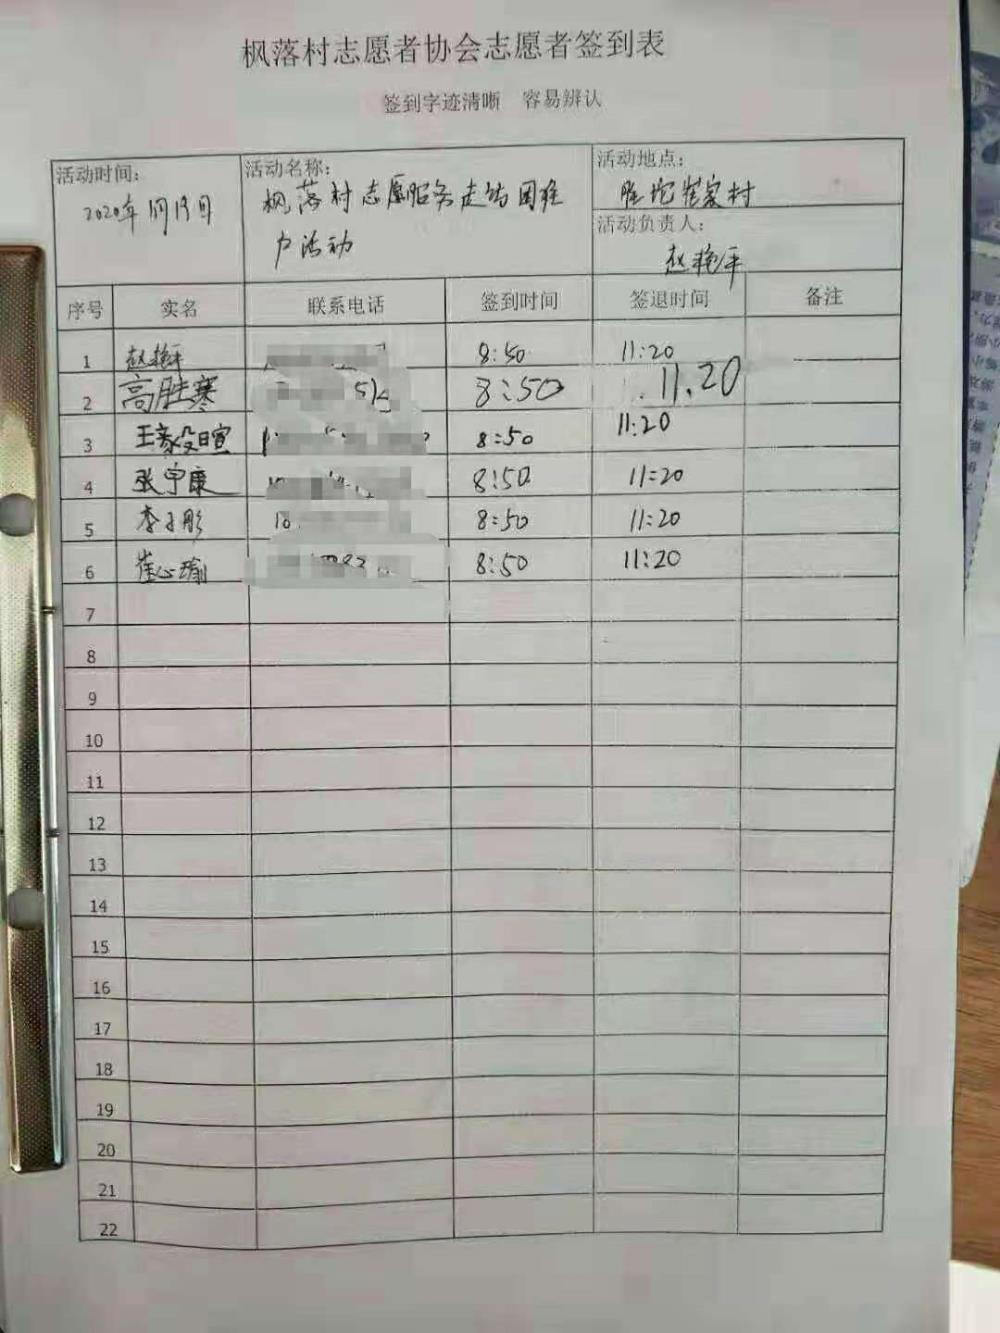 枫落村志愿者协会志愿者签到表
签到字迹清晰 容易辨认
活动时间：
2020年1月19日
活动名称：
枫落村志愿服务走访困难
户活动
活动地点：
胜坨崔家村
活动负责人：
赵艳平
序号 实名 联系电话 签到时间 签退时间 备注
1 赵艳平 8:50 11:20
2 高胜寒 8:50 11.20
3 王 8:50 11:20
4 张宇康 8:50 11:20
5 李子彤 18 8:50 11:20
6 崔心瑜 8:50 11:20
7
8
9
10
11
12
13
14
15
16
17
18
19
20
21
22